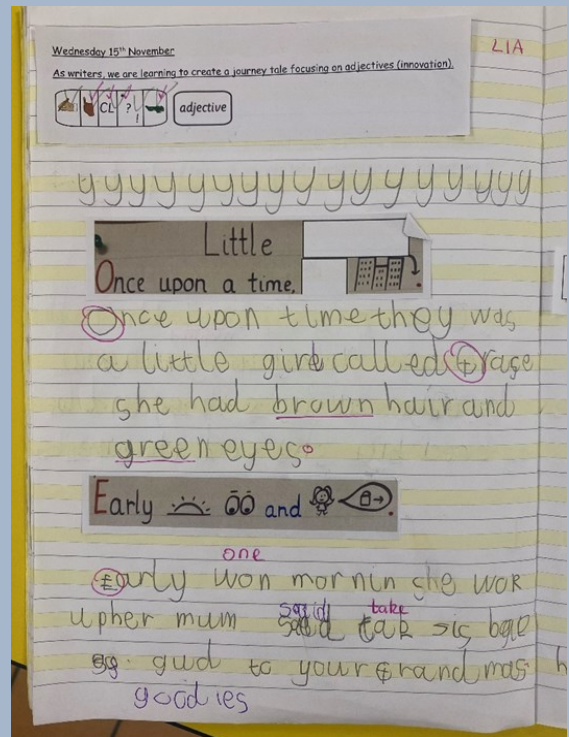 Wednesday 15th November
LIA
As writers, we are learning to create a journey tale focusing on adjectives (innovation).
CL ? ! adjective
y y y y y y y y y y y y y y y y y y
Little
Once upon a time,
Once upon time they was
a little girl called Grase
she had brown hair and
green eyes.
Early and
one
Early won mornin she wok
said take
up her mum said tak sis bage
gud to your Grand mas
goodies